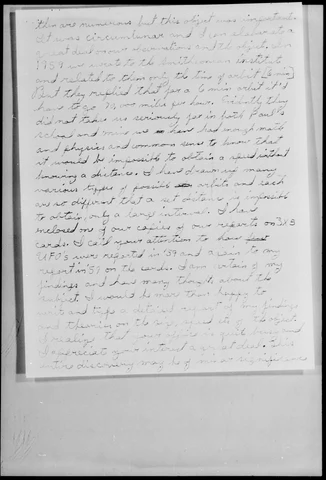 are numerous but this object was important.
It was circumlunar and I can elaborate a
great deal on our observations and the object. In
1959 we wrote to the Smithsonian institute
and related to them only the time of orbit [6 min]
But they replied that for a 6 min orbit it'd
have to go miles per hour. Evidently they
did not take us seriously yet in both Paul's
school and mine we have had enough math
and physics and common sense to know that
it would be impossible to obtain a speed without
knowing a distance. I have drawn many
various types of possible orbits and each
are so different that a set distance is impossible
to obtain, only a large interval. I have
enclosed one of our copies of our reports on 3X5
cards. I call your attention to how
UFO's were reported in '59 and again to my
report in '59 on the cards. I am certain of my
findings and have many thoughts about the
subject. I would be more than happy to
write and type a detailed report of my findings
and theories on the size, speed etc of the object.
I realize that your office is quite busy and
I appreciate your interest a great deal. This
entire discovery may be of minor significance